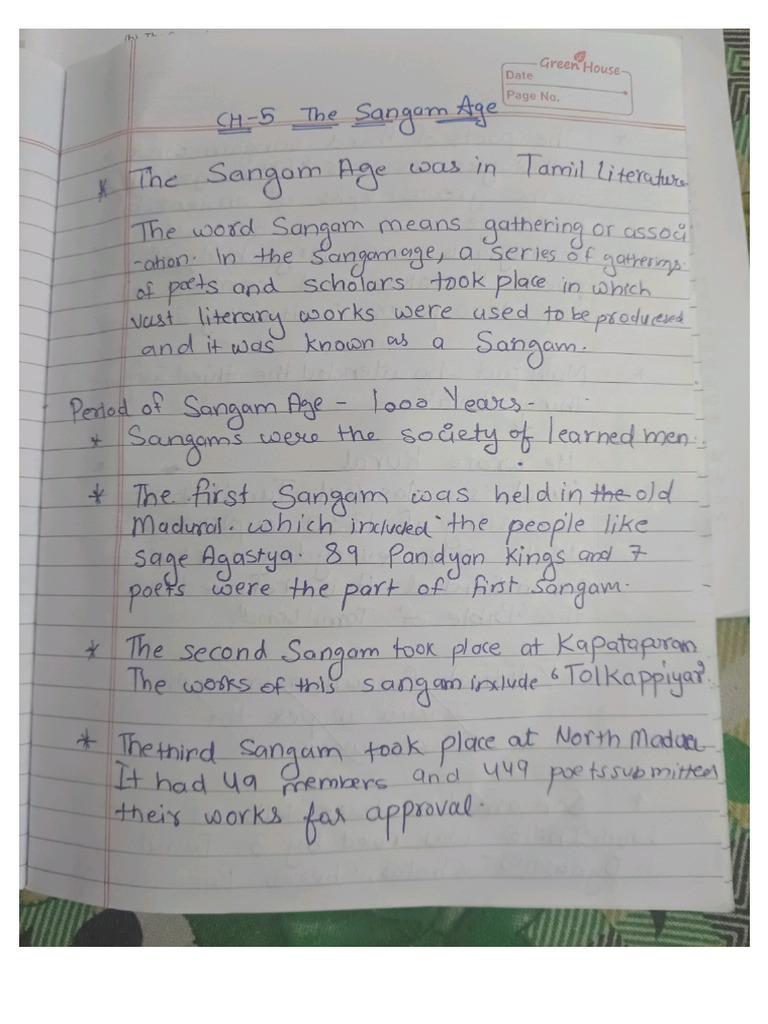 Green House
Date
Page No.
CH-5 The Sangam Age
* The Sangam Age was in Tamil Literature
The word Sangam means gathering or associ
-ation. In the Sangam age, a series of gatherings
of poets and scholars took place in which
vast literary works were used to be producesed
and it was known as a Sangam.
Period of Sangam Age - 1000 Years -
* Sangams were the society of learned men.
* The first Sangam was held in the old
Madurai. which included the people like
sage Agastya. 89 Pandyan kings and 7
poets were the part of first Sangam.
* The second Sangam took place at Kapatapuran
The works of this sangam include "Tolkappiyar"
* The third Sangam took place at North Madurai
It had 49 members and 449 poets submitted
their works for approval.